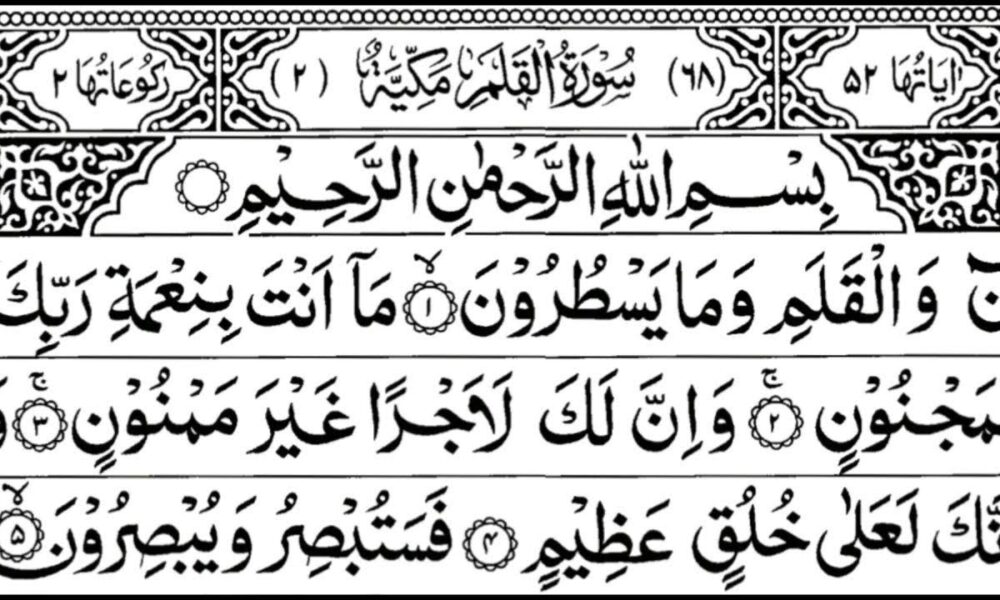 اٰيَاتُهَا ٥٢ (٦٨) سُوْرَةُ الْقَلَمِ مَكِّيَّةٌ (٢) رُكُوْعَاتُهَا ٢
بِسْمِ اللّٰهِ الرَّحْمٰنِ الرَّحِيْمِ
نٓ وَالْقَلَمِ وَمَا يَسْطُرُوْنَ ۙ﴿١﴾ مَاۤ اَنْتَ بِنِعْمَةِ رَبِّكَ
بِمَجْنُوْنٍ ۚ﴿٢﴾ وَاِنَّ لَكَ لَاَجْرًا غَيْرَ مَمْنُوْنٍ ۚ﴿٣﴾
لَعَلٰى خُلُقٍ عَظِيْمٍ ﴿٤﴾ فَسَتُبْصِرُ وَيُبْصِرُوْنَ ۙ﴿٥﴾